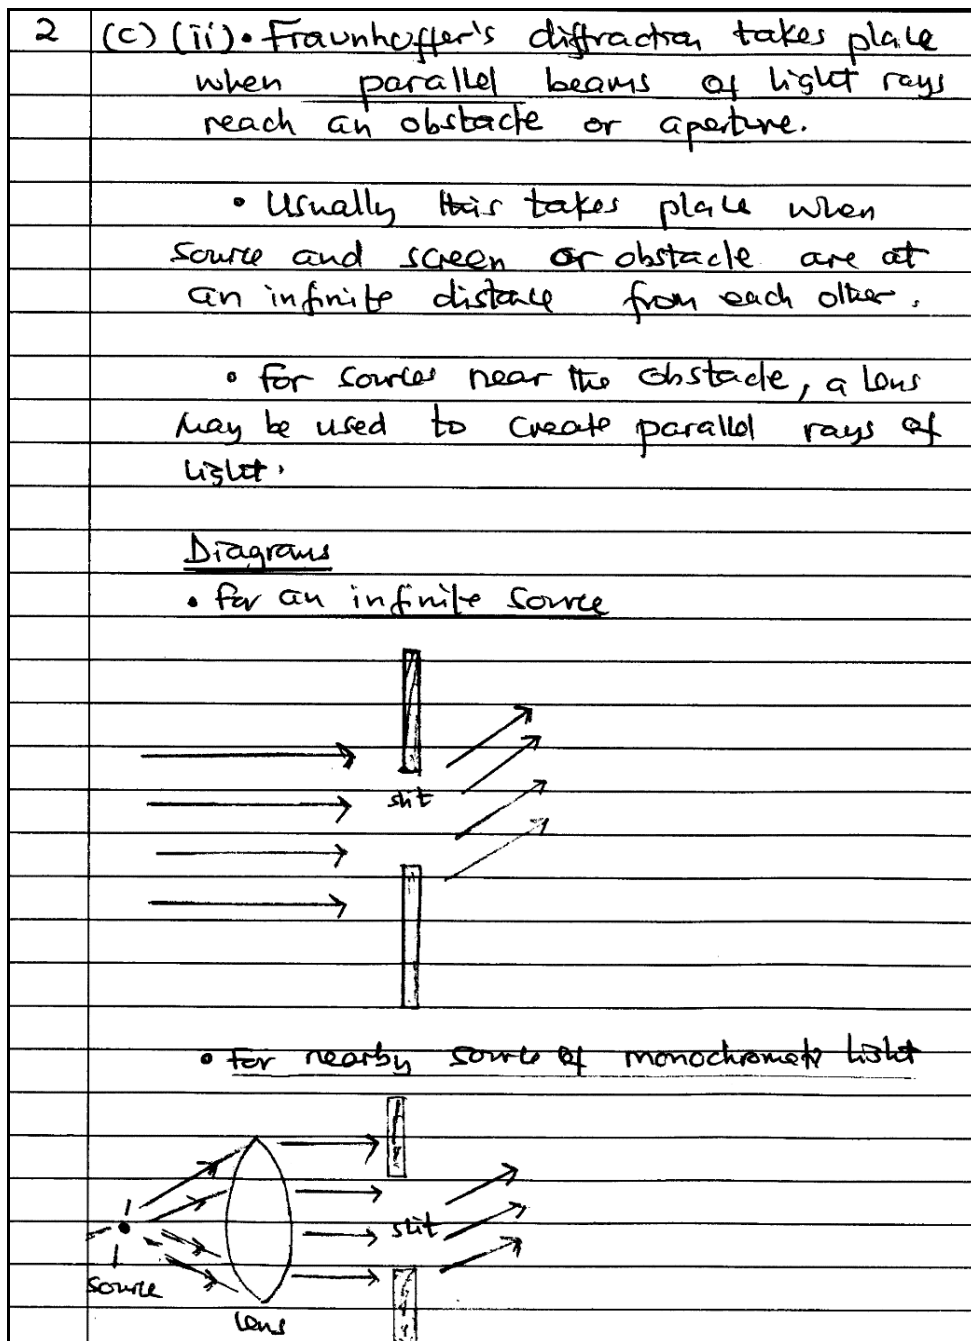 2 (c) (ii) • Fraunhoffer's diffraction takes place
when parallel beams of light rays
reach an obstacle or aperture.
• Usually this takes place when
source and screen or obstacle are at
an infinite distance from each other.
• for sources near the obstacle, a lens
may be used to create parallel rays of
light.
Diagrams
• for an infinite source
slit
• for nearby source of monochromatic light
slit
source
lens